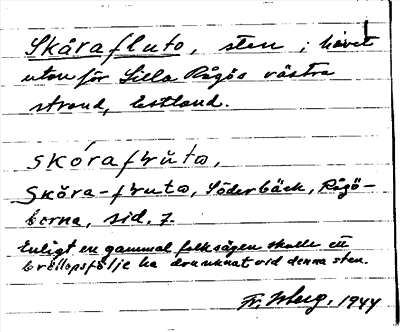 Skårafluto, sten i havet
utanför Lilla Rågös västra
strand, Estland.
skórafłŭtω,
Skŏra-fłutω, Söderbäck, Rågö-
borna, sid. 7.
Enligt en gammal folksägen skulle ett
bröllopsfölje ha drunknat vid denna sten.
1944